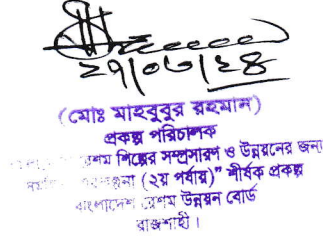 ২৭/০৩/২৪
(মোঃ মাহবুবুর রহমান)
প্রকল্প পরিচালক
রেশম শিল্পের সম্প্রসারণ ও উন্নয়নের জন্য
(২য় পর্যায়)" শীর্ষক প্রকল্প
বাংলাদেশ রেশম উন্নয়ন বোর্ড
রাজশাহী।